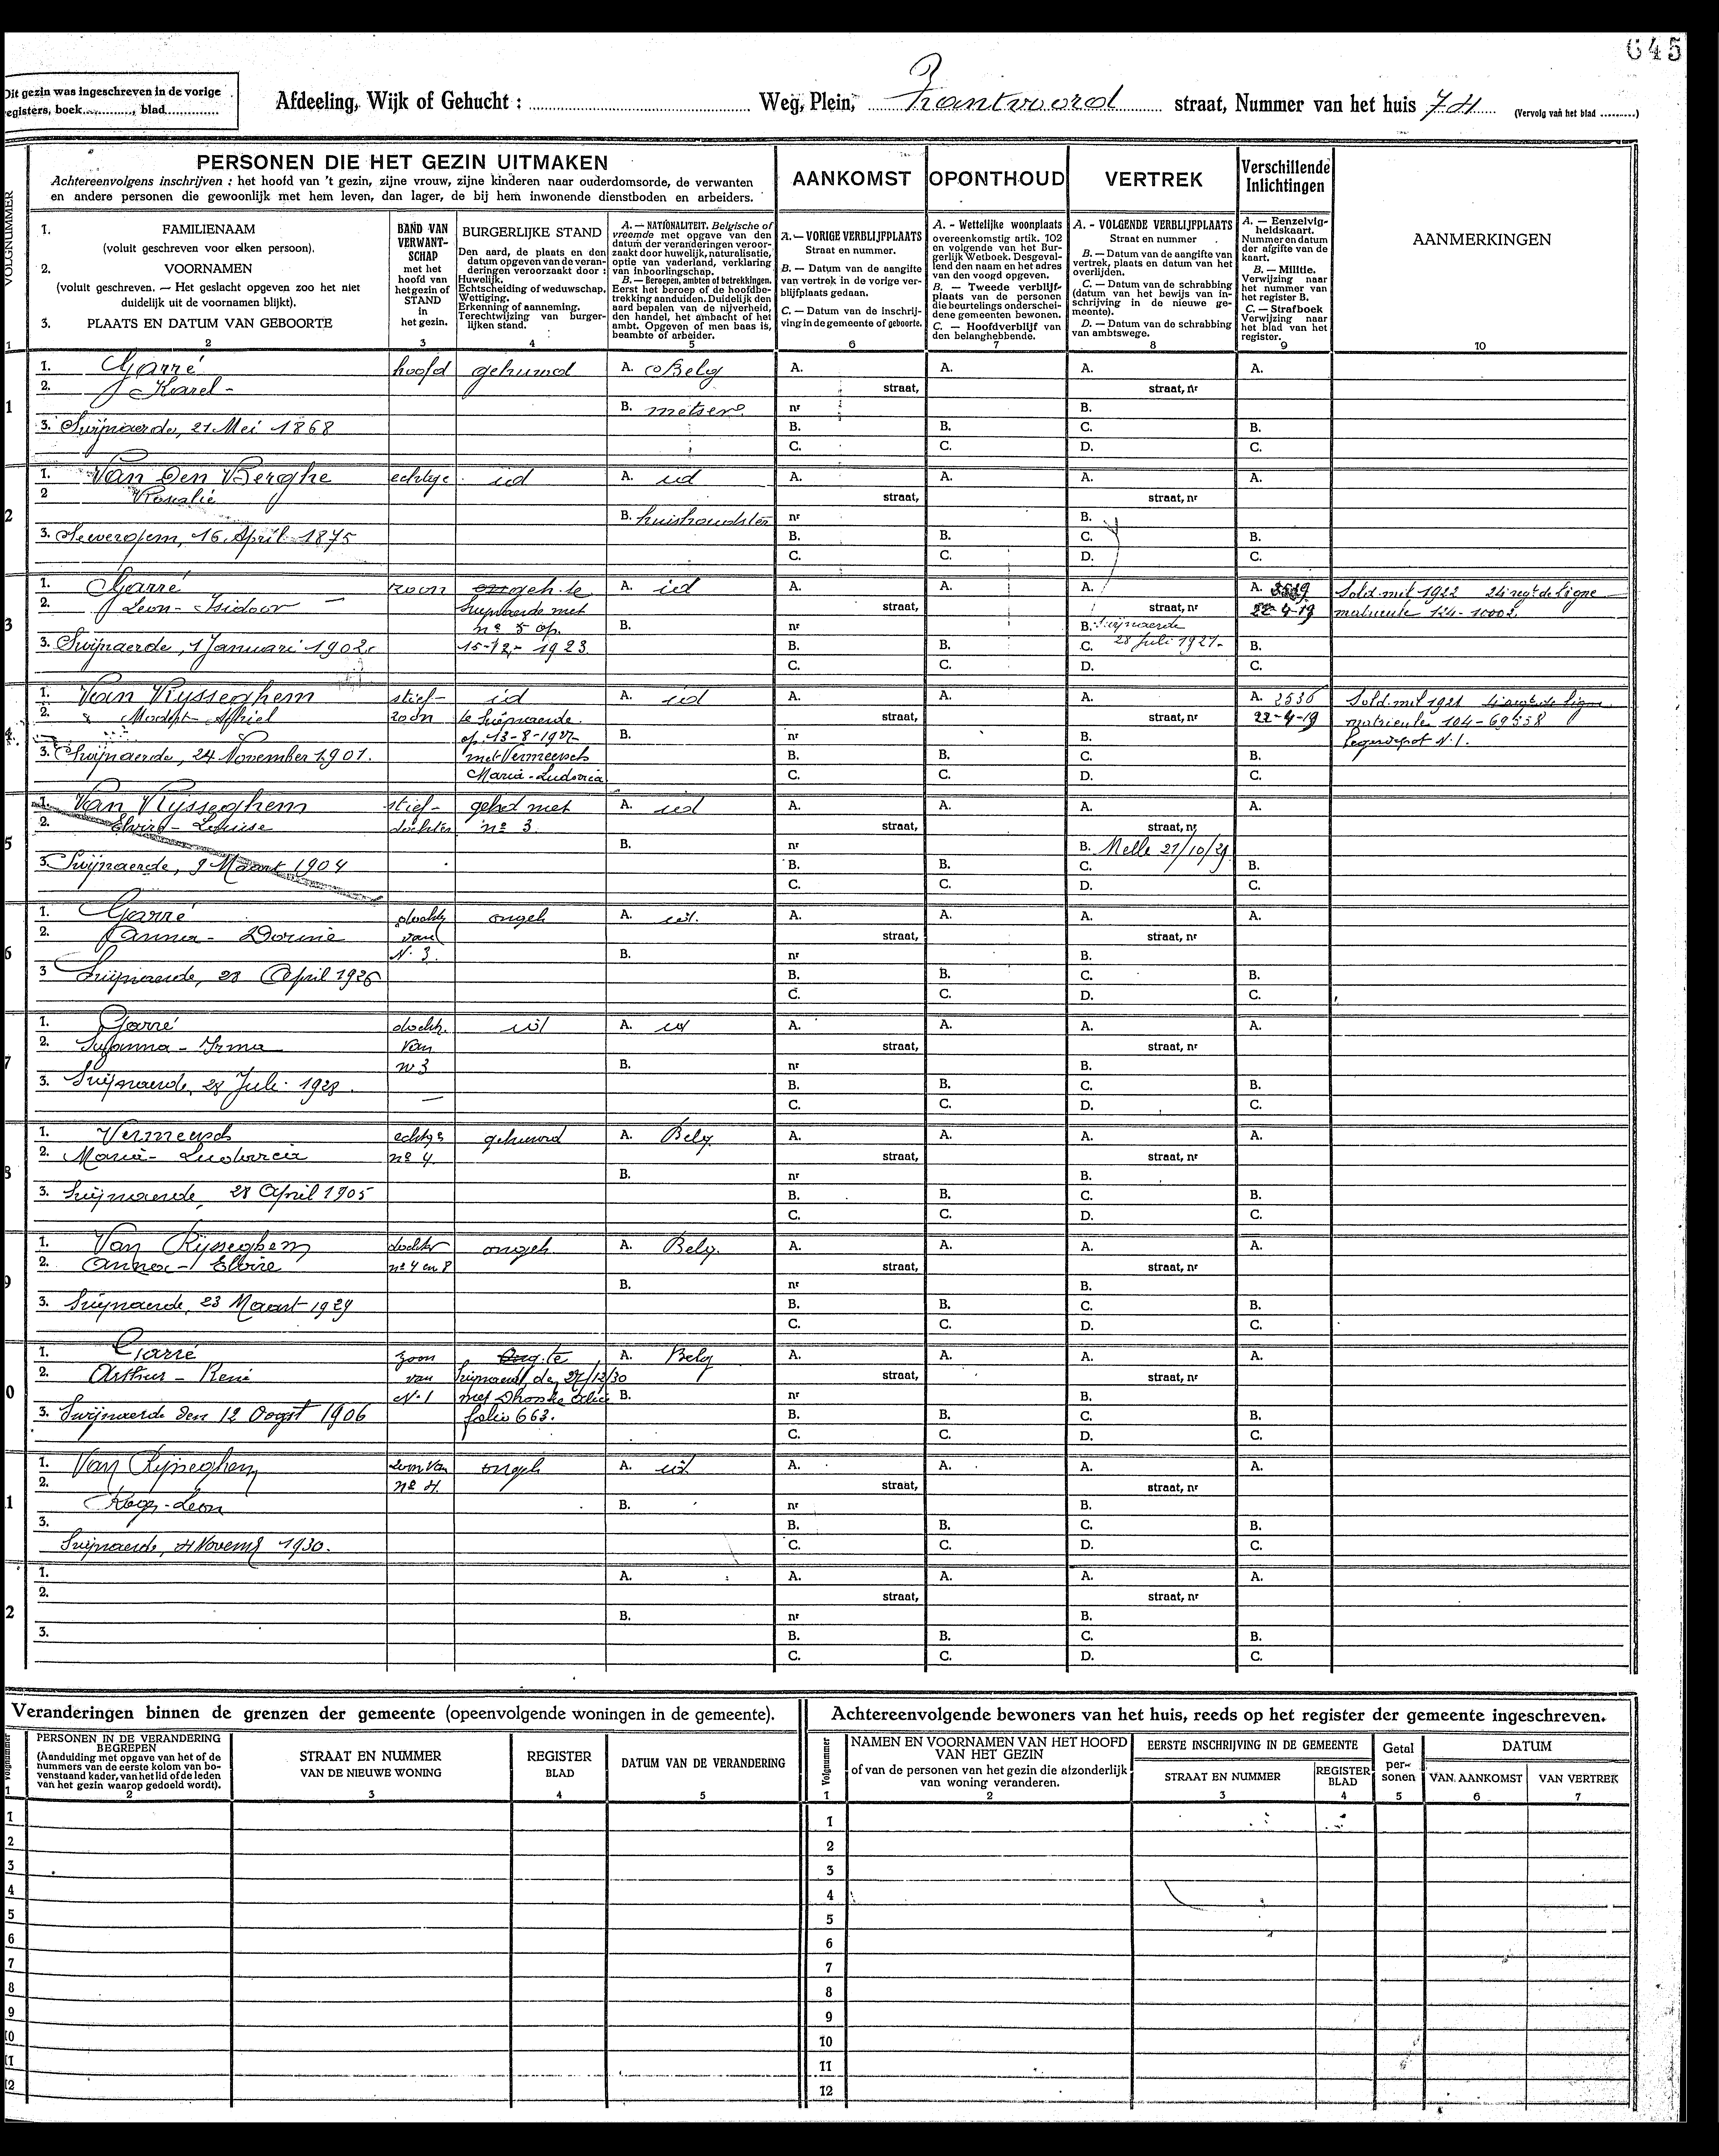 645
Dit gezin was ingeschreven in de vorige
registers, boek............, blad..............
Afdeeling, Wijk of Gehucht : ........ Weg, Plein, Zantvoord straat, Nummer van het huis 74 (Vervolg van het blad .........)
VOLGNUMMER
PERSONEN DIE HET GEZIN UITMAKEN
Achtereenvolgens inschrijven : het hoofd van 't gezin, zijne vrouw, zijne kinderen naar ouderdomsorde, de verwanten
en andere personen die gewoonlijk met hem leven, dan lager, de bij hem inwonende dienstboden en arbeiders.
AANKOMST
OPONTHOUD
VERTREK
Verschillende
Inlichtingen
1. FAMILIENAAM
(voluit geschreven voor elken persoon).
2. VOORNAMEN
(voluit geschreven. — Het geslacht opgeven zoo het niet
duidelijk uit de voornamen blijkt).
3. PLAATS EN DATUM VAN GEBOORTE
BAND VAN
VERWANT-
SCHAP
met het
hoofd van
het gezin of
STAND
in
het gezin.
BURGERLIJKE STAND
Den aard, de plaats en den
datum opgeven van de veran-
deringen veroorzaakt door :
Huwelijk.
Echtscheiding of weduwschap.
Wettiging.
Erkenning of aanneming.
Terechtwijzing van burger-
lijken stand.
A. — NATIONALITEIT. Belgische of
vreemde met opgave van den
datum der veranderingen veroor-
zaakt door huwelijk, naturalisatie,
optie van vaderland, verklaring
van inboorlingschap.
B. — Beroepen, ambten of betrekkingen.
Eerst het beroep of de hoofdbe-
trekking aanduiden. Duidelijk den
aard bepalen van de nijverheid,
den handel, het ambacht of het
ambt. Opgeven of men baas is,
beambte of arbeider.
A. — VORIGE VERBLIJFPLAATS
Straat en nummer.
B. — Datum van de aangifte
van vertrek in de vorige ver-
blijfplaats gedaan.
C. — Datum van de inschrij-
ving in de gemeente of geboorte.
A. - Wettelijke woonplaats
overeenkomstig artik. 102
en volgende van het Bur-
gerlijk Wetboek. Desgeval-
lend den naam en het adres
van den voogd opgeven.
B. — Tweede verblijf-
plaats van de personen
die beurtelings onderschei-
dene gemeenten bewonen.
C. — Hoofdverblijf van
den belanghebbende.
A. - VOLGENDE VERBLIJFPLAATS
Straat en nummer
B. — Datum van de aangifte van
vertrek, plaats en datum van het
overlijden.
C. — Datum van de schrabbing
(datum van het bewijs van in-
schrijving in de nieuwe ge-
meente).
D. — Datum van de schrabbing
van ambtswege.
A. — Eenzelvig-
heidskaart.
Nummer en datum
der afgifte van de
kaart.
B. — Militie.
Verwijzing naar
het nummer van
het register B.
C. — Strafboek
Verwijzing naar
het blad van het
register.
AANMERKINGEN
1 2 3 4 5 6 7 8 9 10
1
1. Garré hoofd gehuwd A. Belg A. A. A. A.
2. Karel - straat, straat, nr
B. metser nr B.
3. Swijnaerde, 21 Mei 1868 B. B. C. B.
C. C. D. C.
2
1. Van Den Berghe echtge id A. id A. A. A. A.
2 Rosalie straat, straat, nr
B. huishoudster nr B.
3. Seevergem, 16 April 1875 B. B. C. B.
C. C. D. C.
3
1. Garré zoon ongeh. te A. id A. A. A. A. 3539 Sold. mil 1922 24 regt de ligne
2. Leon - Isidoor Swijnaerde met straat, straat, nr 22-4-19 matricule 124-10002
nº 5 op. B. nr B. Swijnaerde
3. Swijnaerde, 1 Januari 1902. 15-12-1923 B. B. C. 28 Juli 1921- B.
C. C. D. C.
4
1. Van Rysseghem stief- id A. id A. A. A. A. 2536 Sold. mil 1921 4 regt de ligne
2. Modest - Achiel zoon te Swijnaerde straat, straat, nr 22-4-19 matricule 104-69558
op 13-8-1927 B. nr B. Legerdepot N. 1.
3. Swijnaerde, 24 November 1901. met Vermeersch B. B. C. B.
Maria - Ludovica C. C. D. C.
5
1. Van Rijsseghem stief- gehd met A. id A. A. A. A.
2. Elvire - Louise dochter nº 3 straat, straat, nr
B. nr B. Melle 21/10/29
3. Swijnaerde, 9 Maart 1904 B. B. C. B.
C. C. D. C.
6
1. Garré docht. ongeh A. id. A. A. A. A.
2. Anna - Dorine van straat, straat, nr
N. 3. B. nr B.
3 Swijnaerde, 28 April 1926 B. B. C. B.
C. C. D. C.
7
1. Garré docht. id A. id A. A. A. A.
2. Susanna - Irma van straat, straat, nr
nº 3 B. nr B.
3. Swijnaerde, 28 Juli 1928 B. B. C. B.
C. C. D. C.
8
1. Vermeersch echtge gehuwd A. Belg. A. A. A. A.
2. Maria - Ludovica nº 4. straat, straat, nr
B. nr B.
3. Swijnaerde, 28 April 1905 B. B. C. B.
C. C. D. C.
9
1. Van Rijsseghem dochter ongeh A. Belg. A. A. A. A.
2. Anna - Elvire nº 4 en 8 straat, straat, nr
B. nr B.
3. Swijnaerde, 23 Maart 1929 B. B. C. B.
C. C. D. C.
0
1. Garré zoon Ong. te A. Belg A. A. A. A.
2. Arthur - René van Swijnaerde, den 27/12/30 straat, straat, nr
N. 1 met B. nr B.
3. Swijnaerde den 12 Oogst 1906 folio 663. B. B. C. B.
C. C. D. C.
1
1. Van Rijseghem zoon van ongeh A. id A. A. A. A.
2. nº 4. straat, straat, nr
Roger - Léon B. nr B.
3. B. B. C. B.
Swijnaerde, 4 Novemb 1930. C. C. D. C.
2
1. A. A. A. A. A.
2. straat, straat, nr
B. nr B.
3. B. B. C. B.
C. C. D. C.
Veranderingen binnen de grenzen der gemeente (opeenvolgende woningen in de gemeente).
Volgnummer
PERSONEN IN DE VERANDERING
BEGREPEN
(Aanduiding met opgave van het of de
nummers van de eerste kolom van bo-
venstaand kader, van het lid of de leden
van het gezin waarop gedoeld wordt).
STRAAT EN NUMMER
VAN DE NIEUWE WONING
REGISTER
BLAD
DATUM VAN DE VERANDERING
1 2 3 4 5
1
2
3
4
5
6
7
8
9
10
11
12
Achtereenvolgende bewoners van het huis, reeds op het register der gemeente ingeschreven.
Volgnummer
NAMEN EN VOORNAMEN VAN HET HOOFD
VAN HET GEZIN
of van de personen van het gezin die afzonderlijk
van woning veranderen.
EERSTE INSCHRIJVING IN DE GEMEENTE
STRAAT EN NUMMER
REGISTER
BLAD
Getal
per-
sonen
DATUM
VAN AANKOMST
VAN VERTREK
1 2 3 4 5 6 7
1
2
3
4
5
6
7
8
9
10
11
12